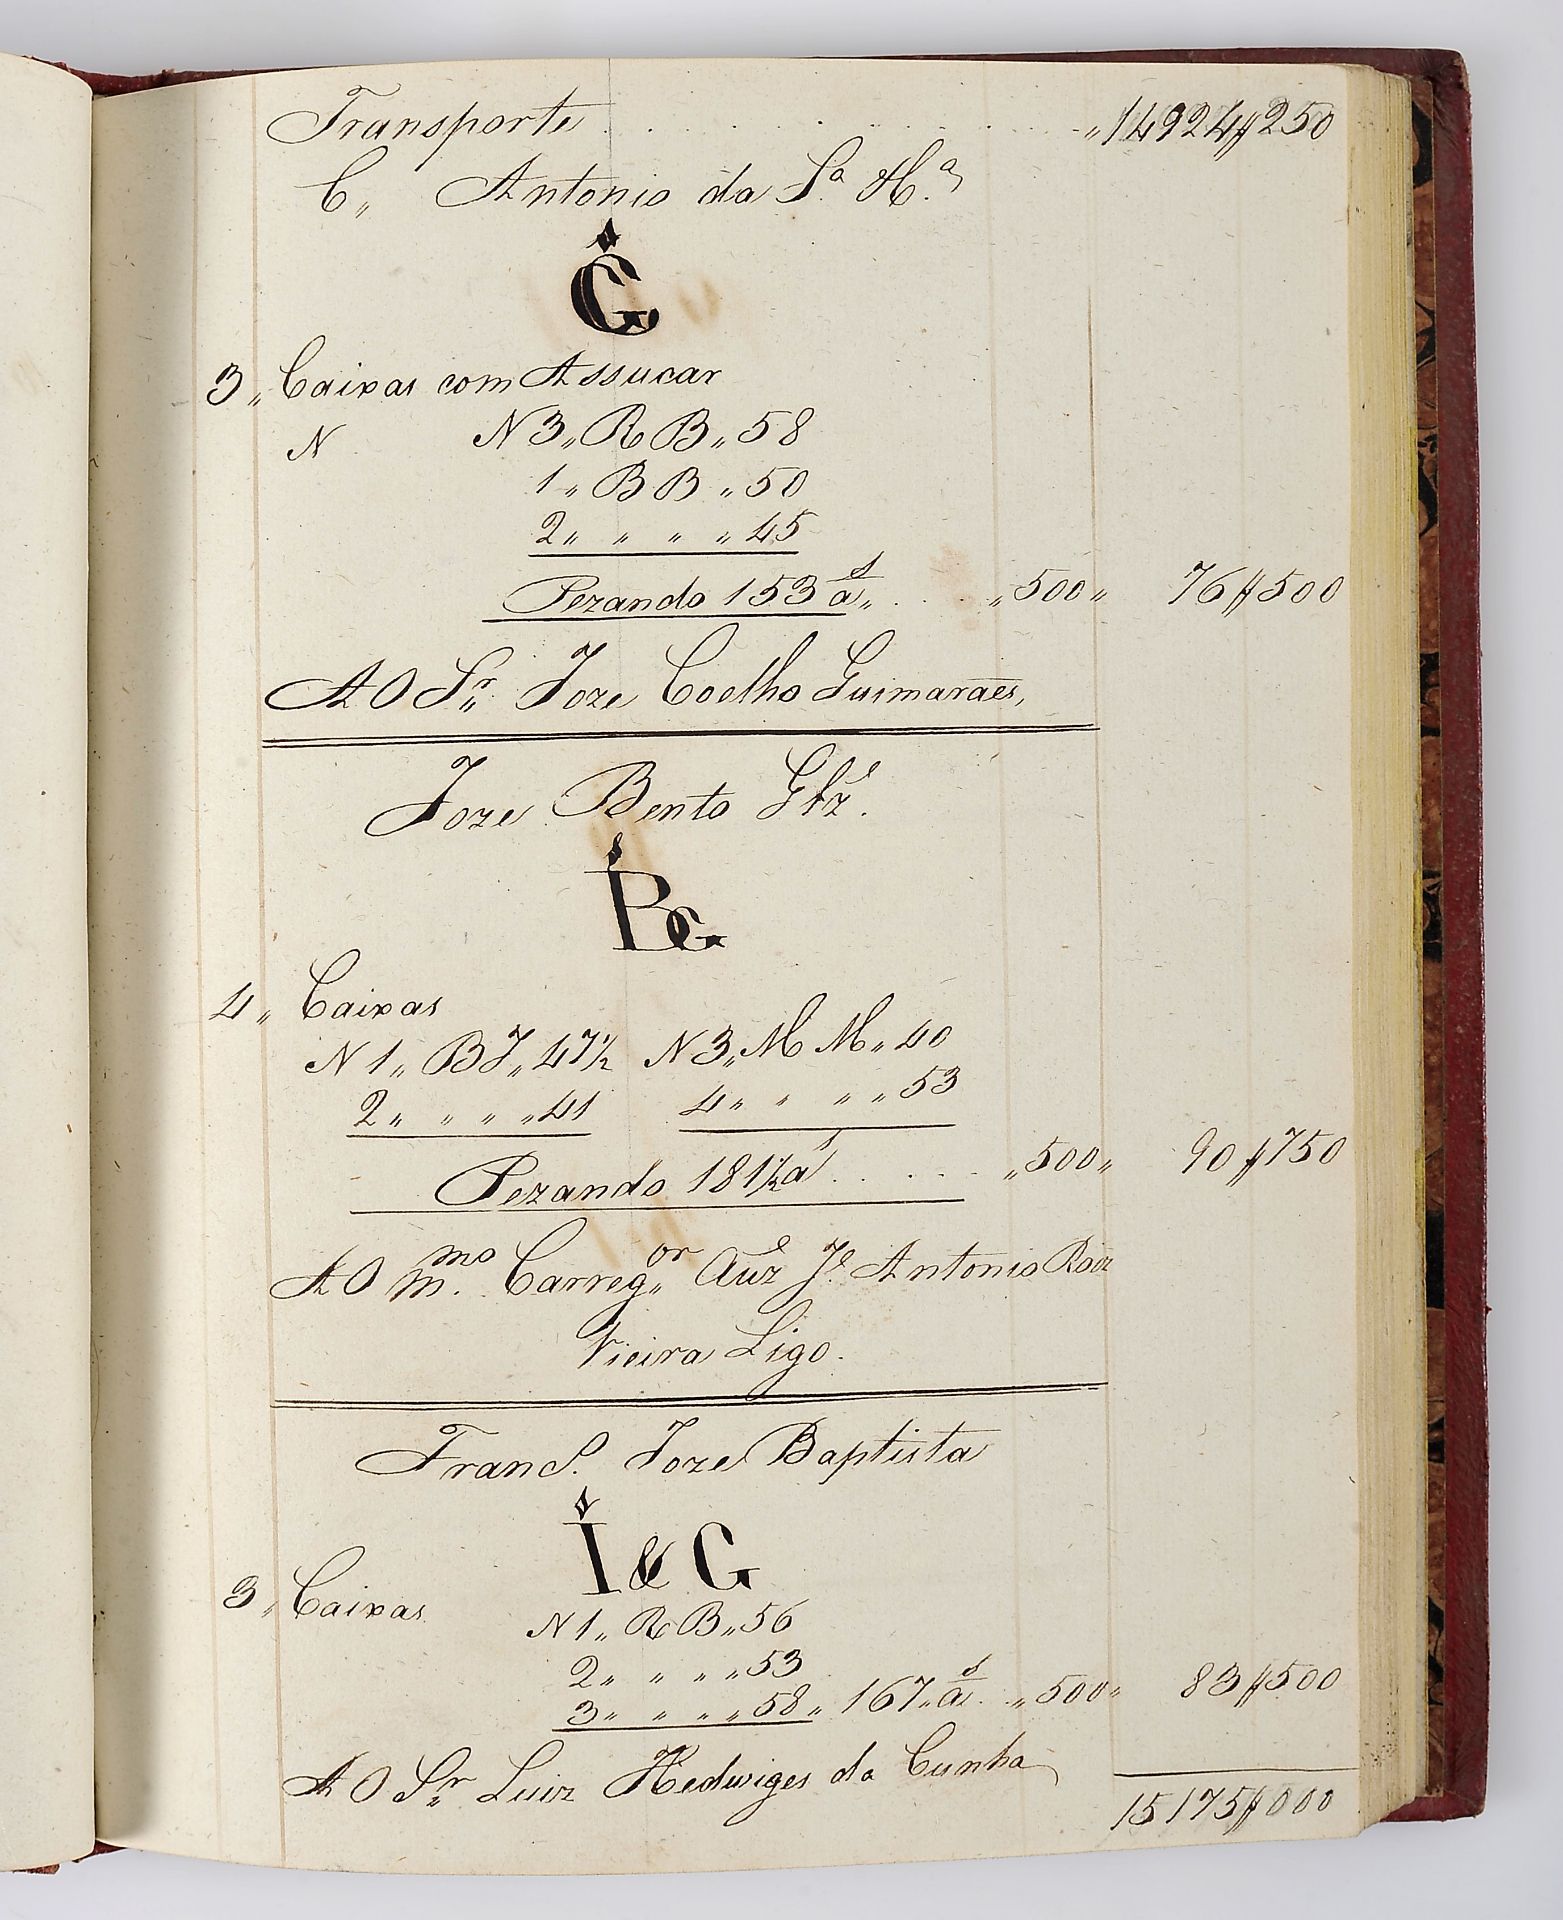 Transporte . . . . . . . . . . . . . . . „ 14924$250
C„ Antonio da S.ª H.ª
G
3„ Caixas com Assucar
N N 3„ R B„ 58
1„ B B„ 50
2„ „ „ „ 45
Pezando 153 a.s„ . . . „500„ 76$500
A O S.r Joze Coelho Guimaraes,
Joze Bento Glz.
BG
4„ Caixas
N 1„ B J„ 47½ N 3„ M M„ 40
2„ „ „ „ 41 4„ „ „ „ 53
Pezando 181½ a.s . . . . „500„ 90$750
A O m.mo Carreg.or Auz.e J.e Antonio Roiz
Vieira Ligo.
Franc.º Joze Baptista
I & G
3„ Caixas
N 1„ R B„ 56
2„ „ „ „ 53
3„ „ „ „ 58„ 167„ a.s . „500„ 83$500
A O S.r Luiz Hedwiges da Cunha
15175$000